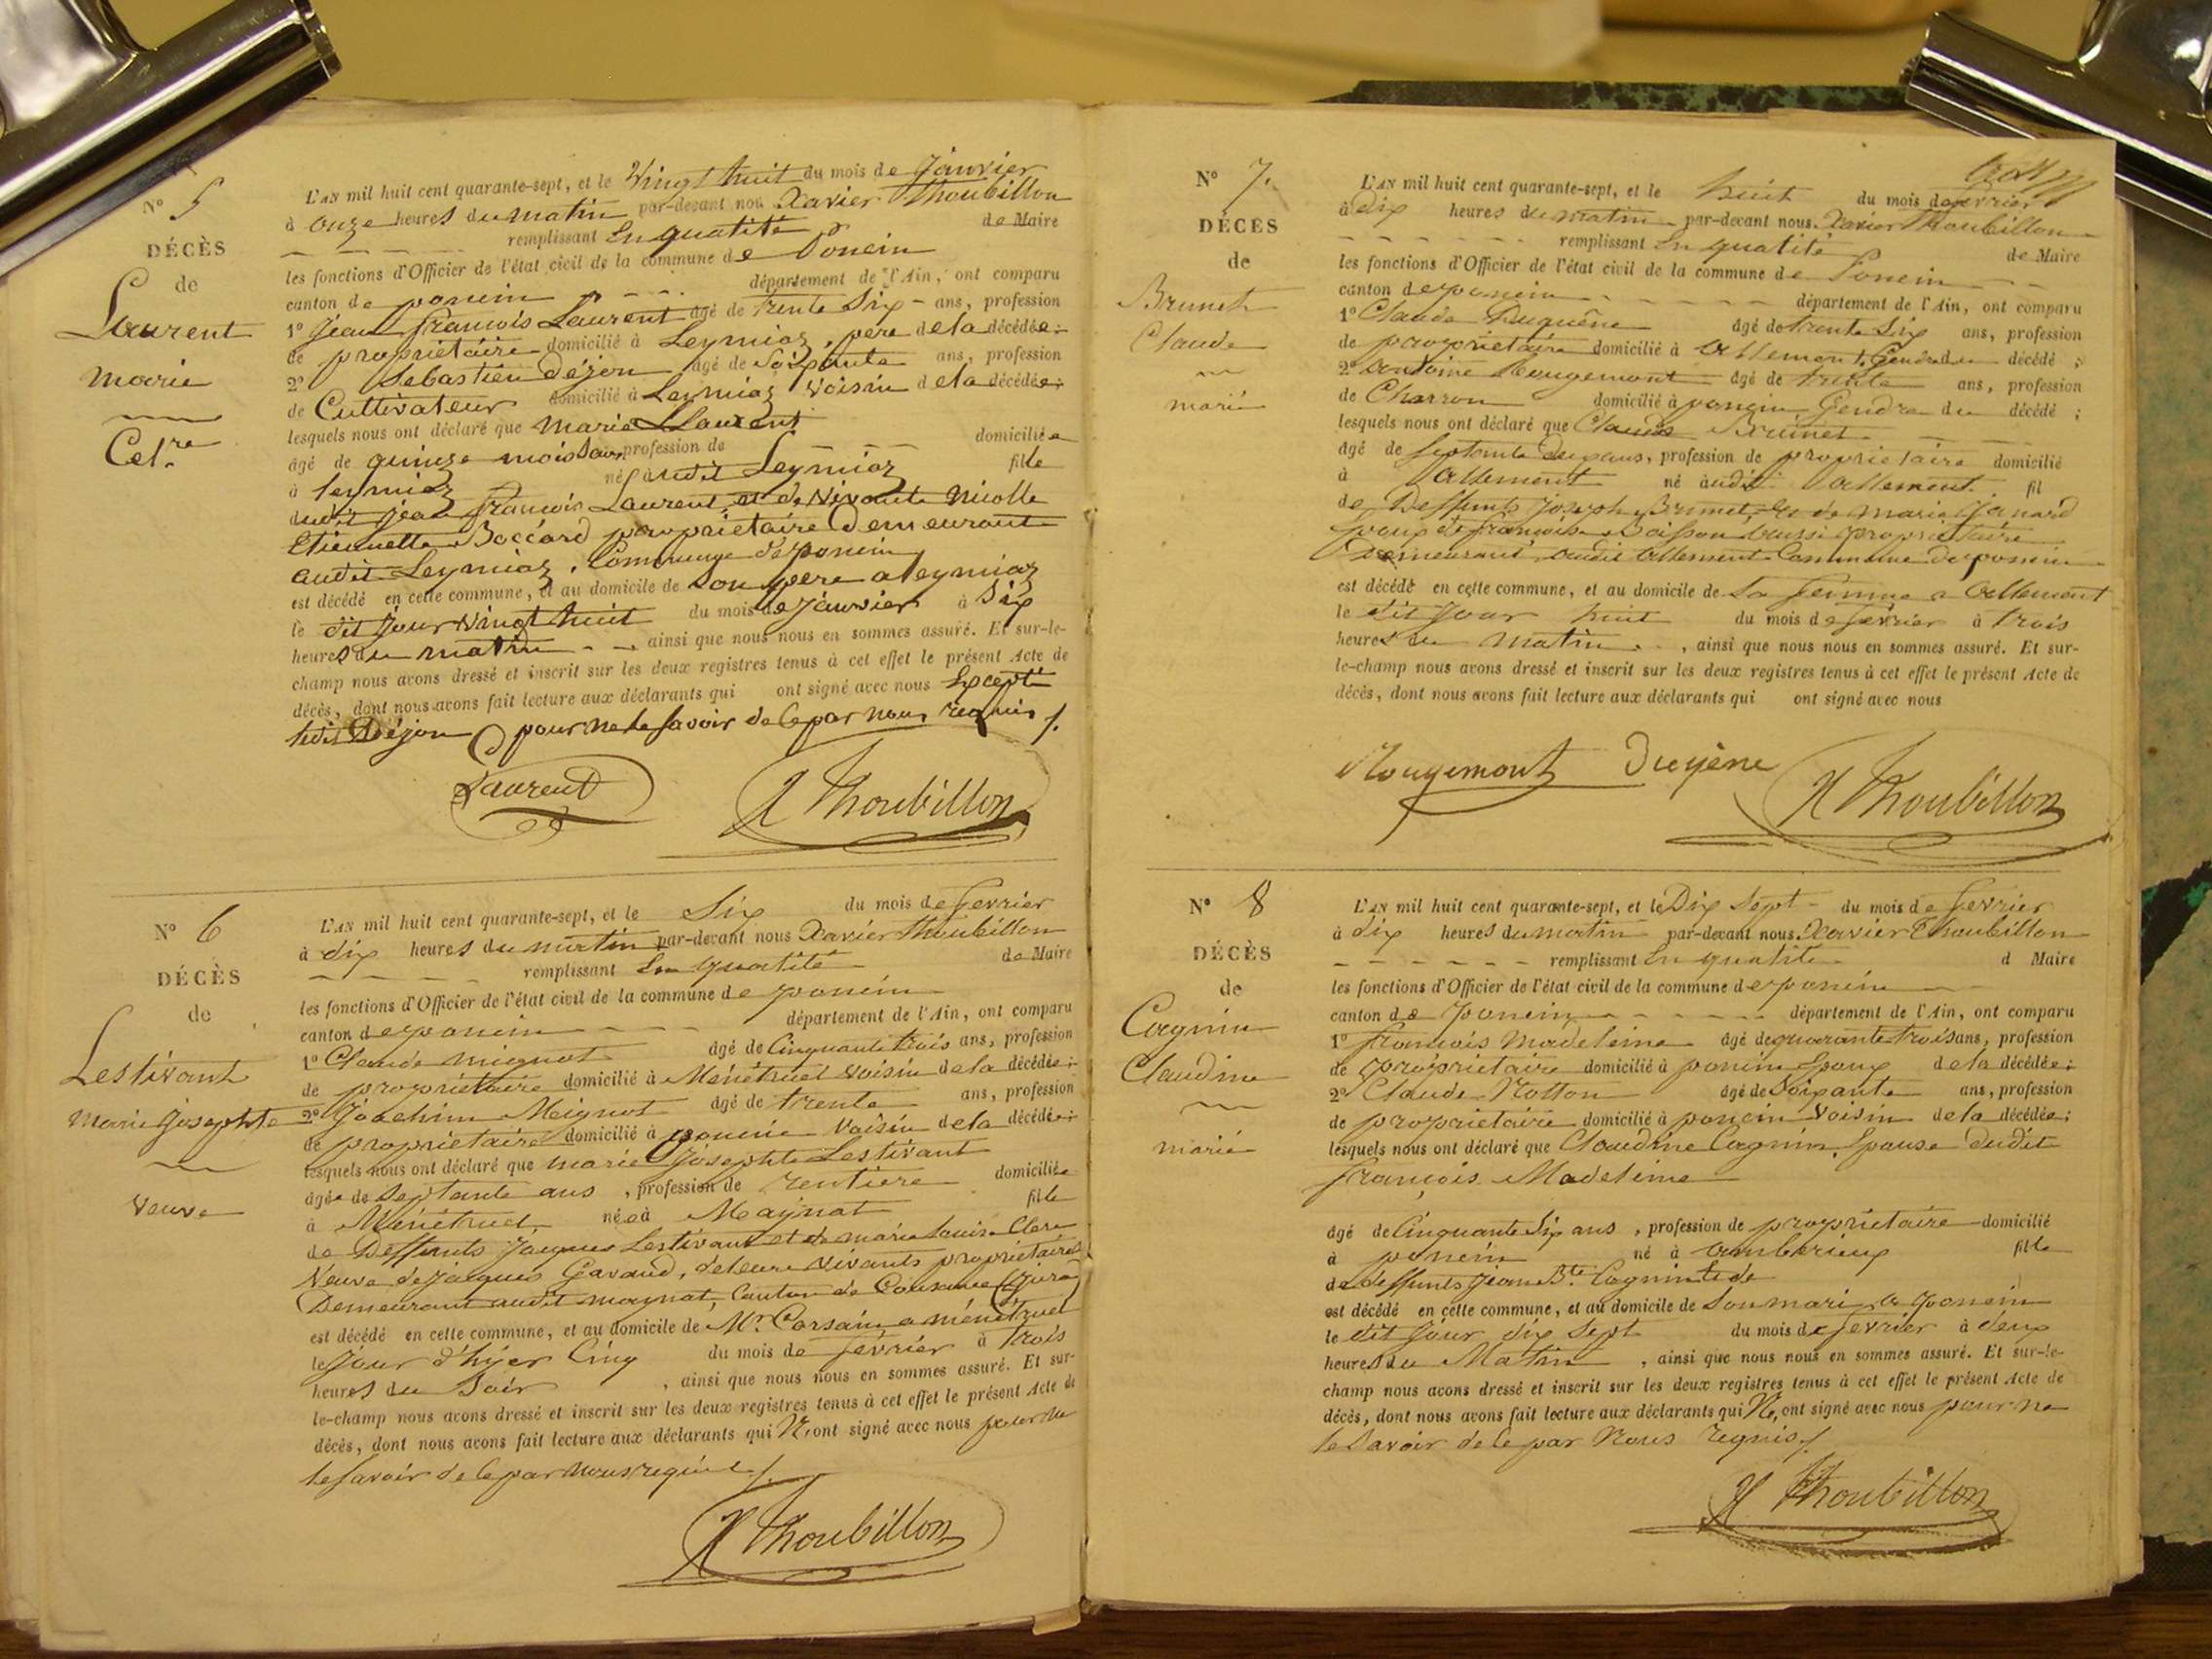 N° 5
DÉCÈS
de
Laurent
marie
Cel.re
L'AN mil huit cent quarante-sept, et le Vingt huit du mois de Janvier
à onze heures du matin par-devant nous Xavier Thoubillon
remplissant En qualité de Maire
les fonctions d'Officier de l'état civil de la commune de Poncin
canton de poncin département de l'Ain, ont comparu
1° Jean françois Laurent âgé de trente Six ans, profession
de propriétaire domicilié à Leymiaz, père de la décédée;
2° Sebastien Déjon âgé de Soixante ans, profession
de Cultivateur domicilié à Leymiaz voisin de la décédée;
lesquels nous ont déclaré que Marie Laurent
âgé de quinze mois Sans profession de domiciliée
à Leymiaz né audit Leymiaz fille
dudit Jean françois Laurent, et de Vivante Nicolle
Etiennette Boccard propriétaire Demeurante
audit Leymiaz, Commune de poncin
est décédé en cette commune, et au domicile de Son père a leymiaz
le dit Jour vingt huit du mois de Janvier à Six
heures du matin ainsi que nous nous en sommes assuré. Et sur-le-
champ nous avons dressé et inscrit sur les deux registres tenus à cet effet le présent Acte de
décès, dont nous avons fait lecture aux déclarants qui ont signé avec nous Excepté
ledit Déjon pour ne le savoir de ce par nous requis /.
Laurent X Thoubillon
N° 6
DÉCÈS
de
Lestivant
Marie Josephte
veuve
L'AN mil huit cent quarante-sept, et le Six du mois de fevrier
à dix heures du matin par-devant nous Xavier Thoubillon
remplissant En qualité de Maire
les fonctions d'Officier de l'état civil de la commune de poncin
canton de poncin département de l'Ain, ont comparu
1° Claude mignot âgé de Cinquante trois ans, profession
de propriétaire domicilié à Ménétruel voisin de la décédée;
2° Joachim Meignot âgé de trente ans, profession
de propriétaire domicilié à poncin voisin de la décédée;
lesquels nous ont déclaré que marie Josephte Lestivant
âgée de Septante ans, profession de rentière domiciliée
à Ménétruel née à Maynat fille
de Deffunts Jacques Lestivant et de marie louise Clere
Veuve de Jacques Gavaud, de leurs vivants propriétaires
Demeurant audit maynat, Canton de Cousance (Jura)
est décédé en cette commune, et au domicile de Mr. Corsain a ménétruel
le Jour d'hyer Cinq du mois de février à trois
heures du Soir, ainsi que nous nous en sommes assuré. Et sur-
le-champ nous avons dressé et inscrit sur les deux registres tenus à cet effet le présent Acte de
décès, dont nous avons fait lecture aux déclarants qui N'ont signé avec nous pour ne
le savoir de ce par nous requis /.
X Thoubillon
N° 7.
DÉCÈS
de
Brunet
Claude
marié
L'AN mil huit cent quarante-sept, et le huit du mois de fevrier
à dix heures du matin par-devant nous Xavier Thoubillon
remplissant En qualité de Maire
les fonctions d'Officier de l'état civil de la commune de Poncin
canton de poncin département de l'Ain, ont comparu
1° Claude Duguêne âgé de trente Six ans, profession
de propriétaire domicilié à allement, Gendre du décédé;
2° Antoine Rougemont âgé de trente ans, profession
de Charron domicilié à poncin Gendre du décédé;
lesquels nous ont déclaré que Claude Brunet
âgé de Septante Deux ans, profession de propriétaire domicilié
à allement né audit allement fil
de Deffunts Joseph Brunet, et de marie Janard
Epoux de françoise Boisson aussi propriétaire
Demeurant audit allement Commune de poncin
est décédé en cette commune, et au domicile de Sa femme a allement
le dit Jour huit du mois de fevrier à trois
heures du matin, ainsi que nous nous en sommes assuré. Et sur-
le-champ nous avons dressé et inscrit sur les deux registres tenus à cet effet le présent Acte de
décès, dont nous avons fait lecture aux déclarants qui ont signé avec nous
Rougemont Dugène X Thoubillon
N° 8
DÉCÈS
de
Cagnin
Claudine
marié
L'AN mil huit cent quarante-sept, et le Dix Sept du mois de fevrier
à dix heures du matin par-devant nous Xavier Thoubillon
remplissant En qualité d Maire
les fonctions d'Officier de l'état civil de la commune de poncin
canton de poncin département de l'Ain, ont comparu
1° françois Madeleine âgé de quarante trois ans, profession
de propriétaire domicilié à poncin Epoux de la décédée;
2° Claude Notton âgé de Soixante ans, profession
de propriétaire domicilié à poncin voisin de la décédée;
lesquels nous ont déclaré que Claudine Cagnin, Epouse dudit
françois Madeleine
âgé de Cinquante Six ans, profession de propriétaire domicilié
à poncin né à ambérieux fille
de deffunts Jean Bte. Cagnin et de
est décédé en cette commune, et au domicile de Son mari a poncin
le dit Jour dix Sept du mois de fevrier à deux
heures du Matin, ainsi que nous nous en sommes assuré. Et sur-le-
champ nous avons dressé et inscrit sur les deux registres tenus à cet effet le présent Acte de
décès, dont nous avons fait lecture aux déclarants qui N'ont signé avec nous pour ne
le Savoir de ce par Nous requis /.
X Thoubillon